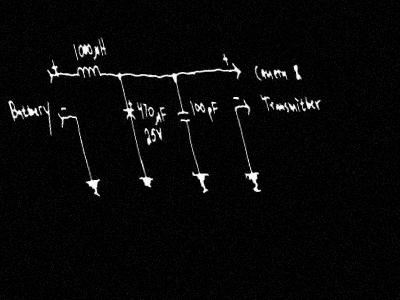 1000µH
+
+
Camera &
Battery
-
470µF
25V
100pF
-
Transmitter